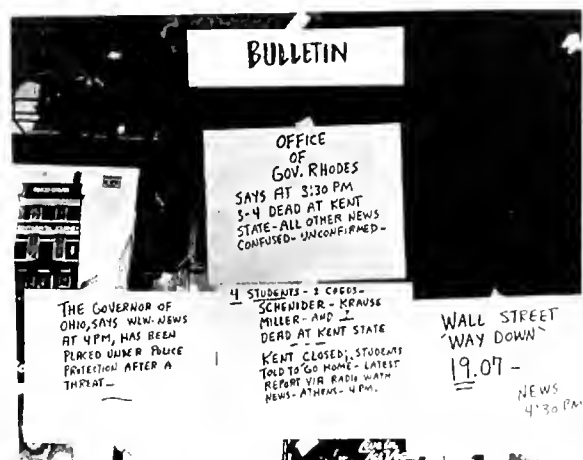 BULLETIN
OFFICE
OF
GOV. RHODES
SAYS AT 3:30 PM
3-4 DEAD AT KENT
STATE-ALL OTHER NEWS
CONFUSED-UNCONFIRMED-
THE GOVERNOR OF
OHIO, SAYS WLW-NEWS
AT 4PM, HAS BEEN
PLACED UNDER POLICE
PROTECTION AFTER A
THREAT-
4 STUDENTS - 2 COEDS-
SCHENIDER - KRAUSE
MILLER - AND ?
DEAD AT KENT STATE
KENT CLOSED; STUDENTS
TOLD TO GO HOME - LATEST
REPORT VIA RADIO WATH
NEWS - ATHENS - 4 PM.
WALL STREET
"WAY DOWN"
19.07 -
NEWS
4:30 PM